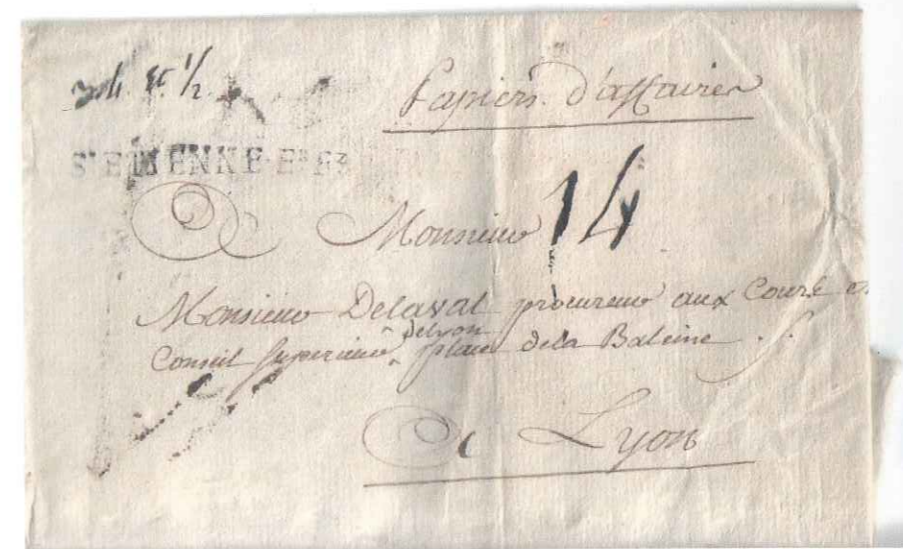 1/2
Papiers d'affaires
St ETIENNE·EN·Fz
A Monsieur 14
Monsieur Delaval procureur aux Cours et
Conseil superieur delyon place dela Baleine
A Lyon